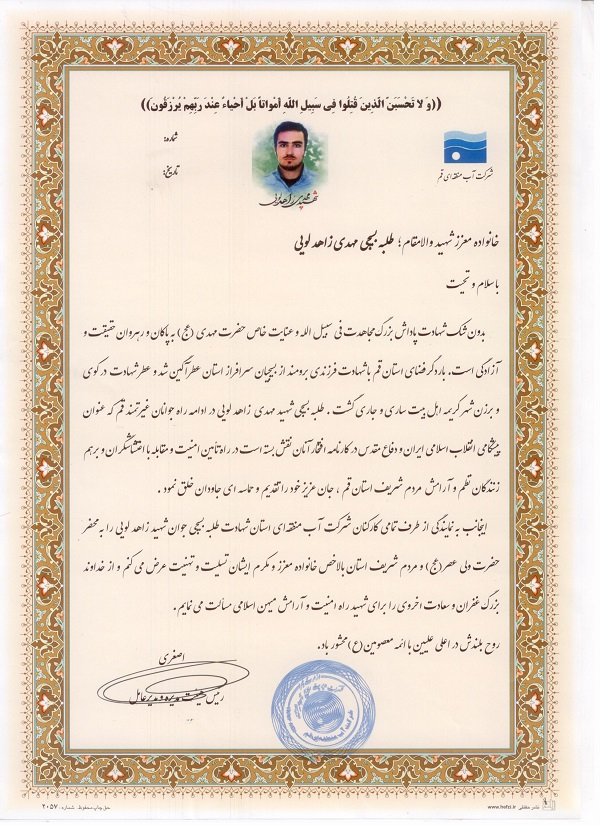 ((وَ لا تَحْسَبَنَ الَّذِینَ قُتِلُوا فِی سَبِیلِ اللَّهِ أَمْوَاتاً بَلْ أَحْیاءٌ عِنْدَ رَبِّهِمْ یُرْزَقُونَ))
شماره:
تاریخ:
شرکت آب منطقه ای قم
شهید مهدی زاهدلویی
خانواده معزز شهید والامقام؛ طلبه بسیجی مهدی زاهد لویی
با سلام و تحیت
بدون شک شهادت پاداش بزرگ مجاهدت فی سبیل الله و عنایت خاص حضرت مهدی (عج) به پاکان و رهروان حقیقت و
آزادگی است. بار دگر فضای استان قم با شهادت فرزندی برومند از بسیجیان سرافراز استان عطرآگین شد و عطر شهادت در کوی
و برزن شهر کریمه اهل بیت ساری و جاری گشت. طلبه بسیجی شهید مهدی زاهد لویی در ادامه راه جوانان غیرتمند قم که عنوان
پیشگامی انقلاب اسلامی ایران و دفاع مقدس در کارنامه افتخار آنان نقش بسته است در راه تأمین امنیت و مقابله با اغتشاشگران و برهم
زنندگان نظم و آرامش مردم شریف استان قم، جان عزیز خود را تقدیم و حماسه ای جاودان خلق نمود.
اینجانب به نمایندگی از طرف تمامی کارکنان شرکت آب منطقه ای استان شهادت طلبه بسیجی جوان شهید زاهد لویی را به محضر
حضرت ولی عصر (عج) و مردم شریف استان بالاخص خانواده معزز و مکرم ایشان تسلیت و تهنیت عرض می کنم و از خداوند
بزرگ غفران و سعادت اخروی را برای شهید راه امنیت و آرامش میهن اسلامی مسألت می نمایم.
روح بلندش در اعلی علیین با ائمه معصومین (ع) محشور باد.
اصغری
رئیس هیئت مدیره و مدیر عامل
حق چاپ محفوظ. شماره: ۲۰۵۷
www.hefzi.ir